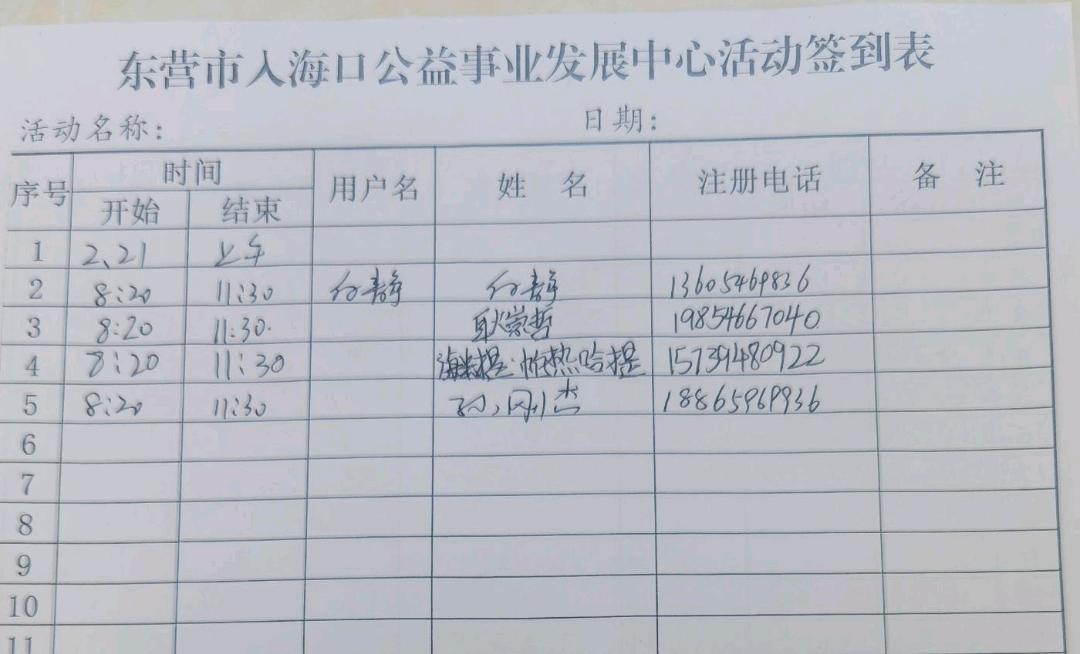 东营市入海口公益事业发展中心活动签到表
活动名称: 日期:
序号 时间 用户名 姓 名 注册电话 备 注
开始 结束
1 2、21 上午
2 8:20 11:30 付静 付静 13605469836
3 8:20 11:30. 耿崇哲 19854667040
4 8:20 11:30 15739480922
5 8:20 11:30 孙刚杰 18865969936
6
7
8
9
10
11